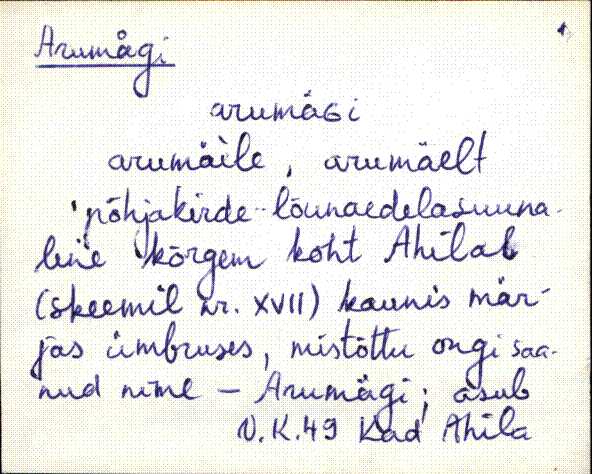 Arumägi
arumäGi
arumäile, arumäelt
põhjakirde-lõunaedelasuuna-
line kõrgem koht Ahilal
(skeemil nr. XVII) kaunis mär-
jas ümbruses, mistõttu ongi saa-
nud nime – Arumägi; asub
V.K.49 Kad Ahila